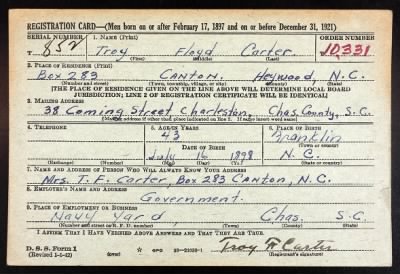 REGISTRATION CARD—(Men born on or after February 17, 1897 and on or before December 31, 1921)
SERIAL NUMBER 1. NAME (Print) ORDER NUMBER
T 852 Troy Floyd Carter 10,331
(First) (Middle) (Last)
2. PLACE OF RESIDENCE (Print)
Box 283 Canton, Heywood, N.C.
(Number and street) (Town, township, village, or city) (County) (State)
[THE PLACE OF RESIDENCE GIVEN ON THE LINE ABOVE WILL DETERMINE LOCAL BOARD
JURISDICTION; LINE 2 OF REGISTRATION CERTIFICATE WILL BE IDENTICAL]
3. MAILING ADDRESS
38 Coming Street Charleston, Chas. County, S.C.
[Mailing address if other than place indicated on line 2. If same insert word same]
4. TELEPHONE 5. AGE IN YEARS 6. PLACE OF BIRTH
43 Franklin
DATE OF BIRTH (Town or county)
July 16 1898 N.C.
(Exchange) (Number) (Mo.) (Day) (Yr.) (State or country)
7. NAME AND ADDRESS OF PERSON WHO WILL ALWAYS KNOW YOUR ADDRESS
Mrs. T. F. Carter, Box 283 Canton, N.C.
8. EMPLOYER'S NAME AND ADDRESS
Government.
9. PLACE OF EMPLOYMENT OR BUSINESS
Navy Yard, Chas. S.C.
(Number and street or R. F. D. number) (Town) (County) (State)
I AFFIRM THAT I HAVE VERIFIED ABOVE ANSWERS AND THAT THEY ARE TRUE.
D. S. S. Form 1
(Revised 1-1-42) GPO Troy F Carter
(Registrant's signature)